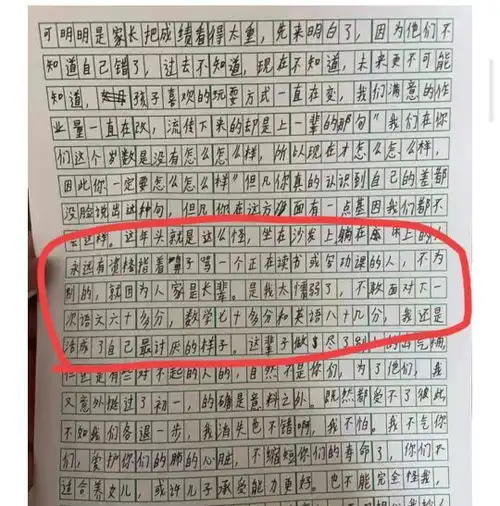 可明明是家长把成绩看得太重，先来明白了，因为他们不
知道自己错了，过去不知道，现在不知道，未来更不可能
知道，孩子喜欢的玩耍方式一直在变，我们满意的作
业量一直在改，流传下来的却是上一辈的那句"我们在你
们这个岁数是没有怎么怎么样，所以现在才怎么怎么样，
因此你一定要怎么怎么样"但凡你真的认识到自己的差都
没脸说出这种句，但凡你在这方面有一点基因我们都不
会这样。这年头就是这么怪，坐在沙发上躺在床上的人
永远有资格指着鼻子骂一个正在读书或写功课的人，不为
别的，就因为人家是长辈。是我太懦弱了，不敢面对下一
次语文六十多分，数学七十多分和英语八十几分，我还是
活成了自己最讨厌的样子。这辈子做尽了别人的出气桶
但也是有些对不起的人的，自然不是你们，为了他们，
又意外挺过了初一，的确是意料之外。既然都受不了彼此，
不如我们各退一步，我消失也不错啊，我不怕。我不气你
们，爱护你们的肺的心脏，不缩短你们的寿命了，你们不
适合养女儿，或许儿子承受能力更好。也不能完全怪我，